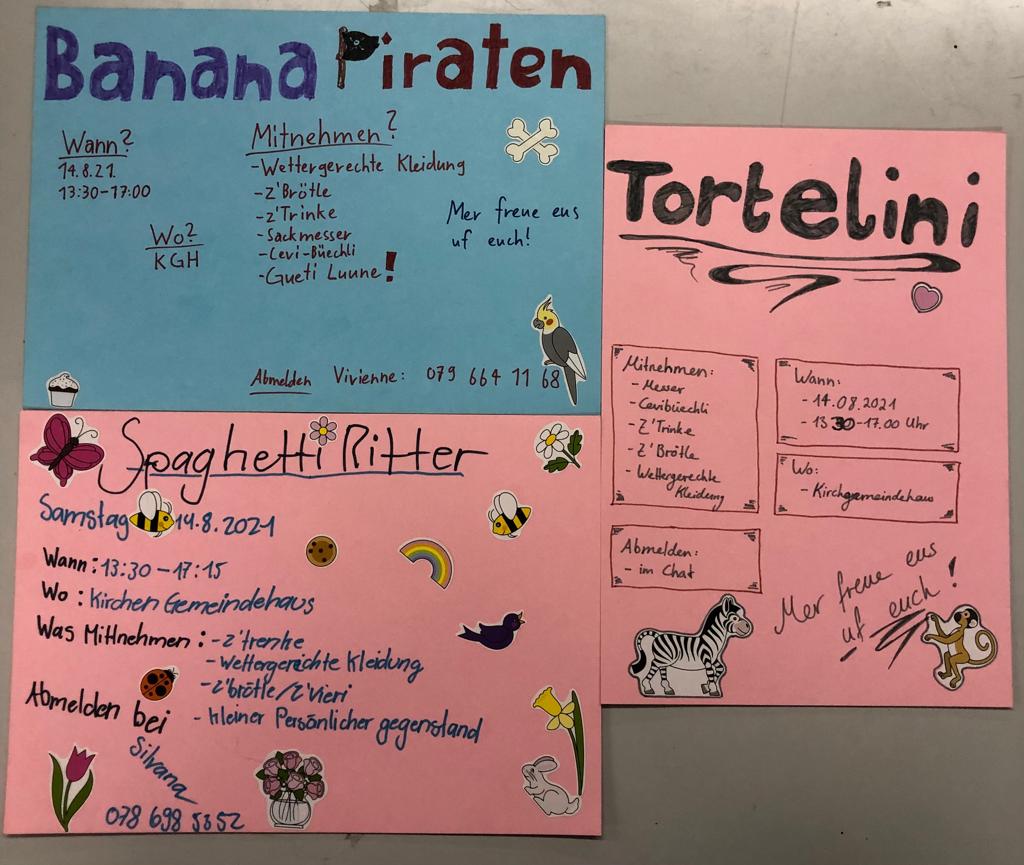 Banana Piraten
Wann?
14.8.21.
13:30-17:00
Wo?
KGH
Mitnehmen?
-Wettergerechte Kleidung
-Z'Brötle
-z'Trinke
-Sackmesser
-Cevi-Büechli
-Gueti Luune!
Mer freue eus
uf euch!
Abmelden Vivienne: 079 664 11 68
Tortelini
Mitnehmen:
- Messer
- Cevibüechli
- Z'Trinke
- Z'Brötle
- Wettergerechte
Kleidung
Wann:
- 14.08.2021
- 13 30-17.00 Uhr
Wo:
- Kirchgemeindehaus
Abmelden:
- im Chat
Mer freue eus
uf euch!
Spaghetti Ritter
Samstag 14.8.2021
Wann: 13:30-17:15
Wo: Kirchen Gemeindehaus
Was Mittnehmen: -z'trenke
-Wettergerechte Kleidung
-z'brötle/z'vieri
-kleiner Persönlicher gegenstand
Abmelden bei
Silvana
078 698 5352